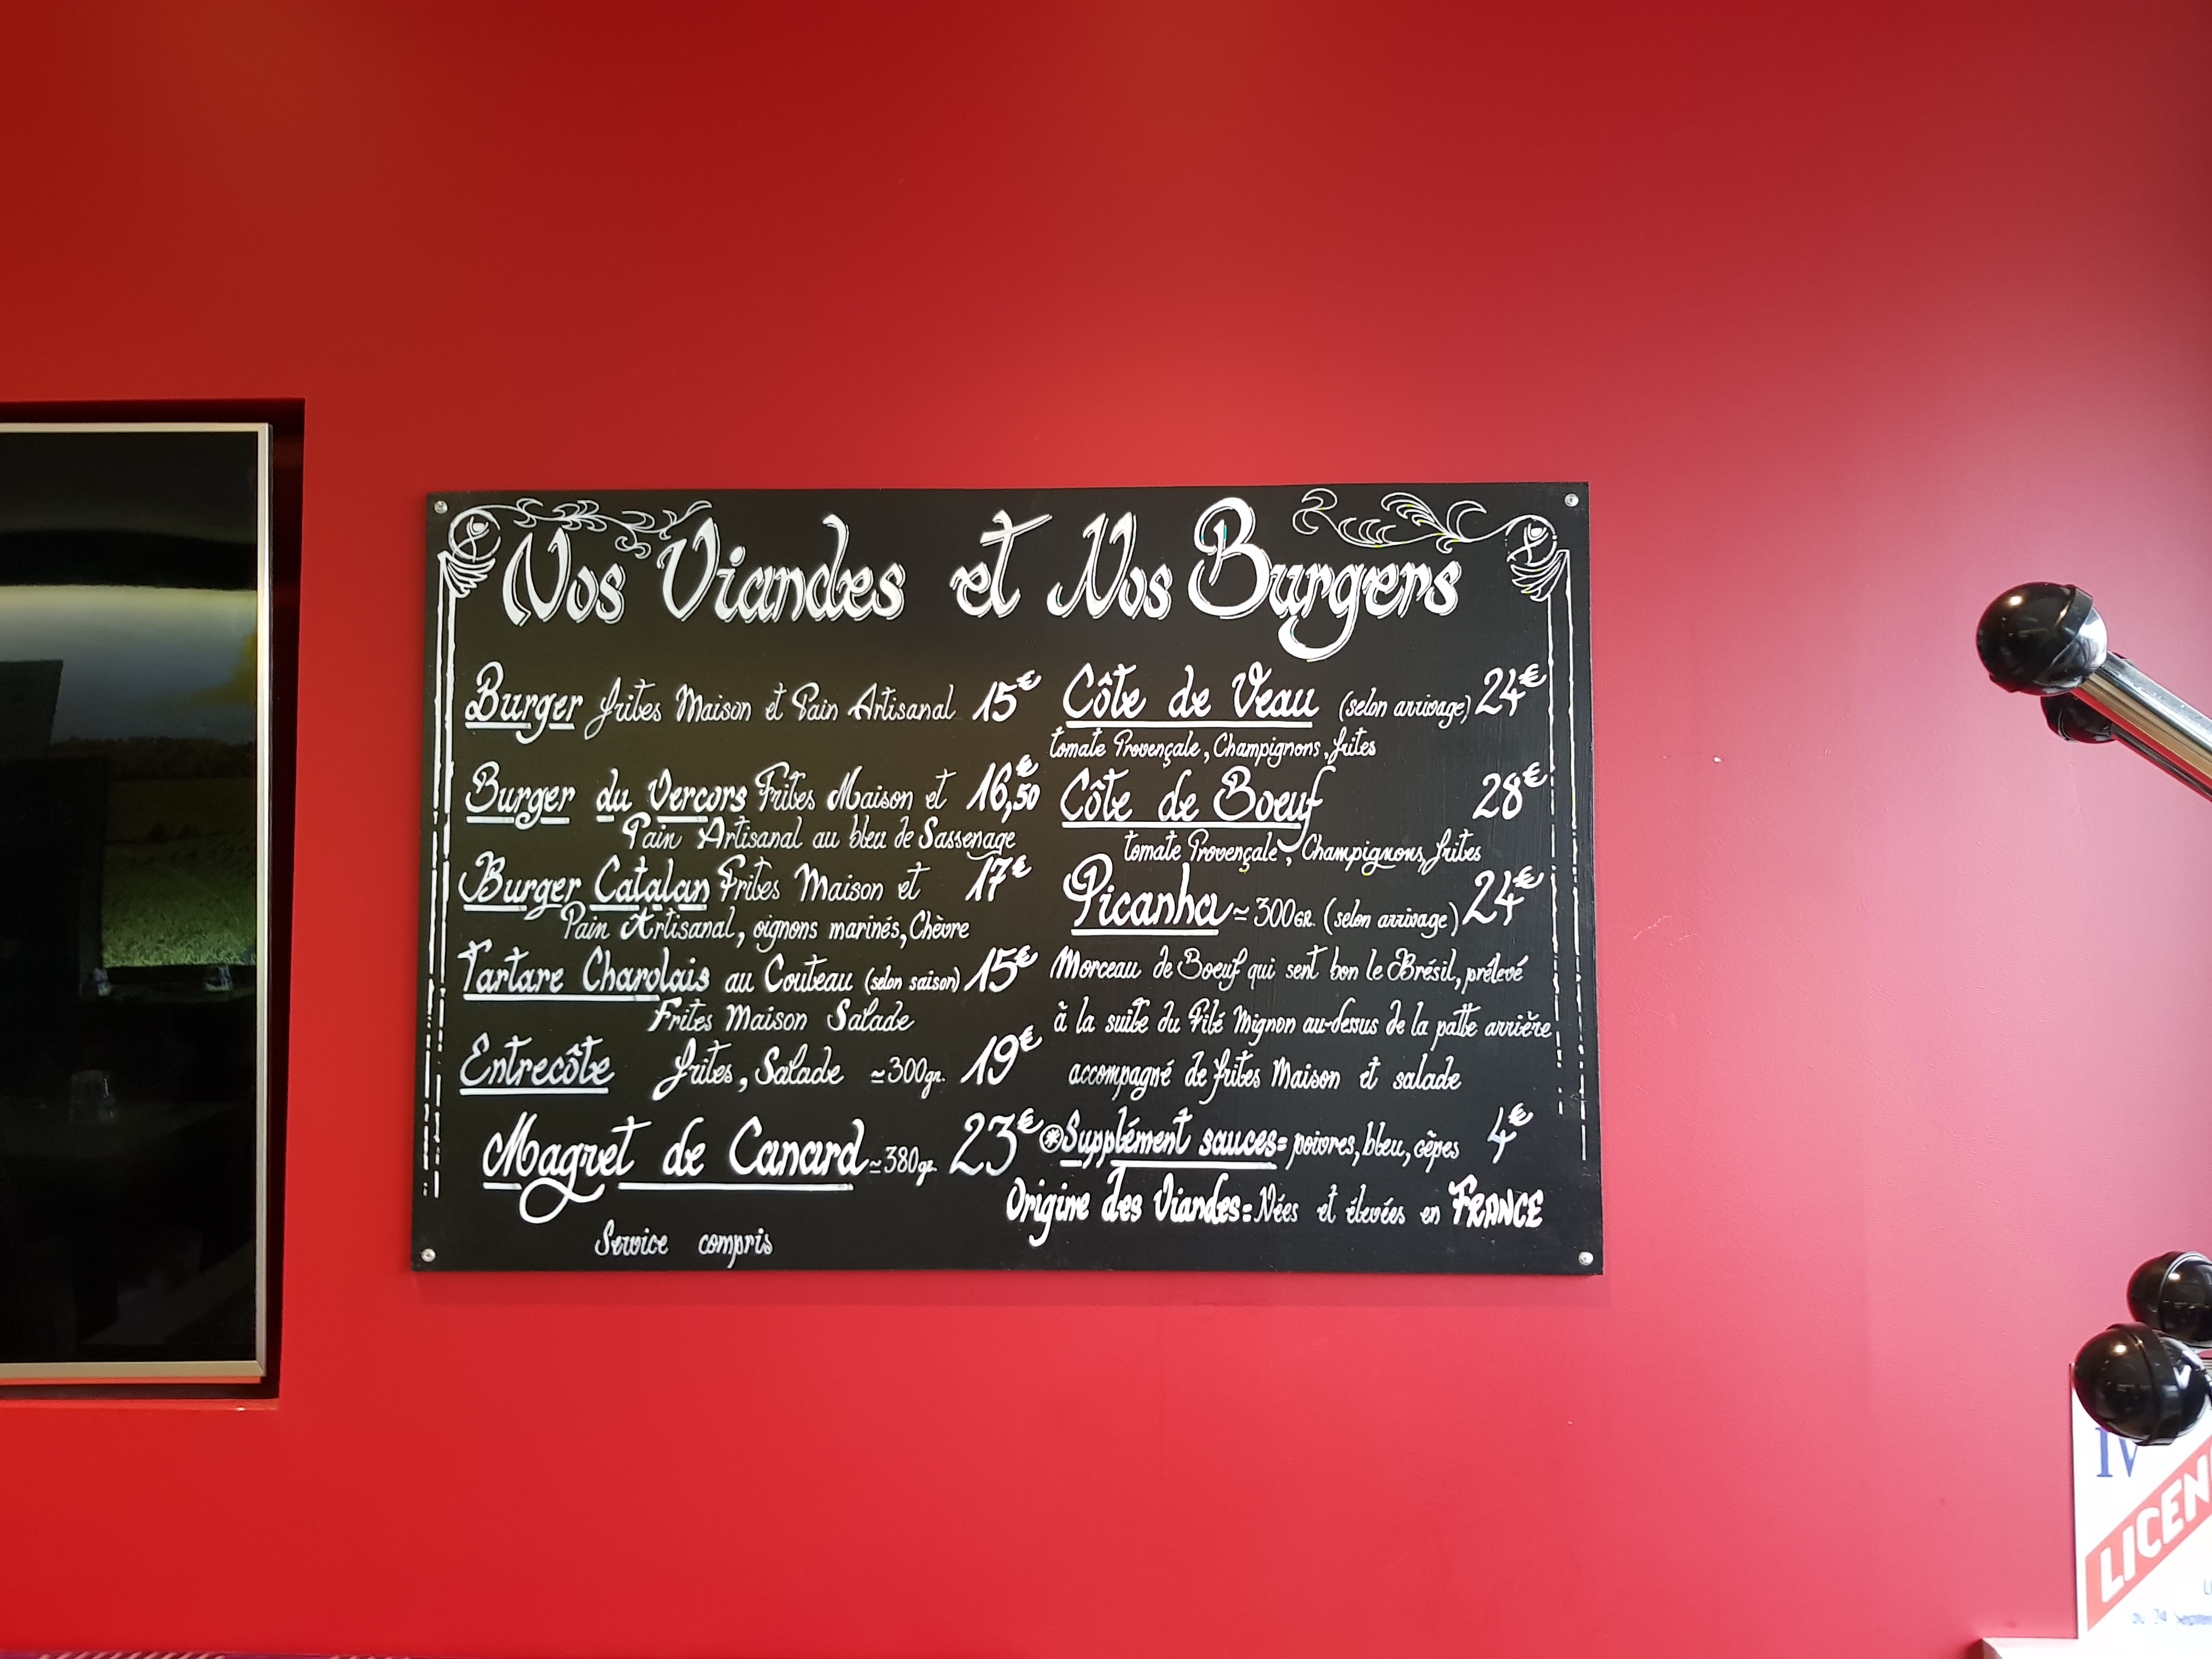 Nos Viandes et Nos Burgers
Burger frites Maison et Pain Artisanal 15€
Burger du Vercors Frites Maison et 16,50€
Pain Artisanal au bleu de Sassenage
Burger Catalan Frites Maison et 17€
Pain Artisanal, oignons marinés, Chèvre
Tartare Charolais au Couteau (selon saison) 15€
Frites Maison Salade
Entrecôte frites, Salade ≃300gr. 19€
Magret de Canard ≃380gr. 23€
Service compris
Côte de Veau (selon arrivage) 24€
tomate Provençale, Champignons, frites
Côte de Boeuf 28€
tomate Provençale, Champignons, frites
Picanha ≃300GR. (selon arrivage) 24€
Morceau de Boeuf qui sent bon le Brésil, prélevé
à la suite du Filé Mignon au-dessus de la patte arrière
accompagné de frites Maison et salade
⊛Supplément sauces= poivres, bleu, cêpes 4€
Origine des Viandes= Nées et élevées en FRANCE
IV
LICEN